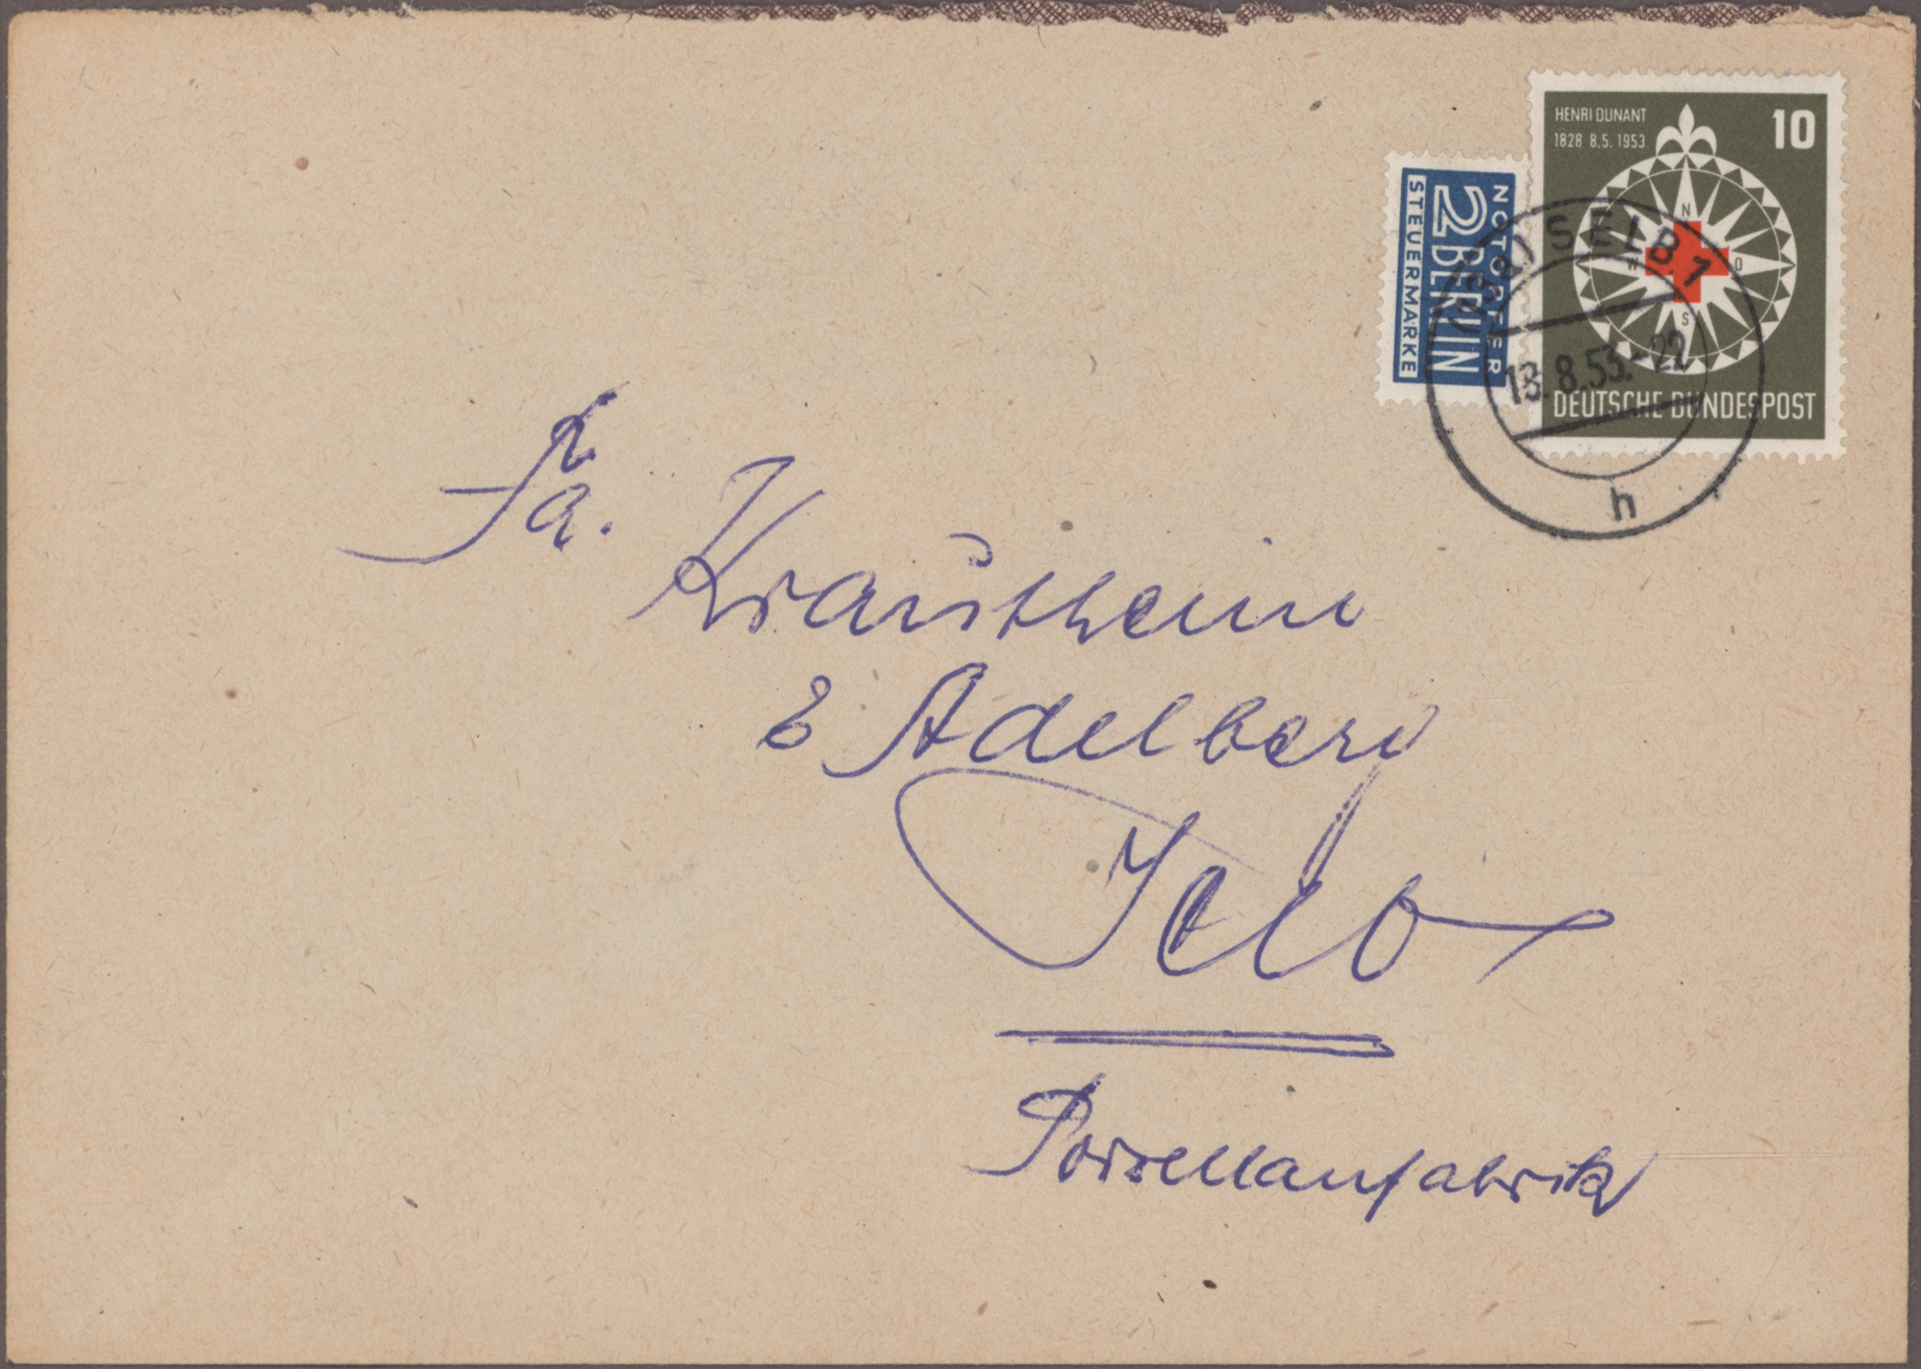 HENRI DUNANT
1828 8.5.1953
10
N
W O
S
DEUTSCHE BUNDESPOST
NOTOPFER
2 BERLIN
STEUERMARKE
SELB 1
18.8.53.-22
h
Fa.
Krautheim
& Adelberg
Selb
Porzellanfabrik